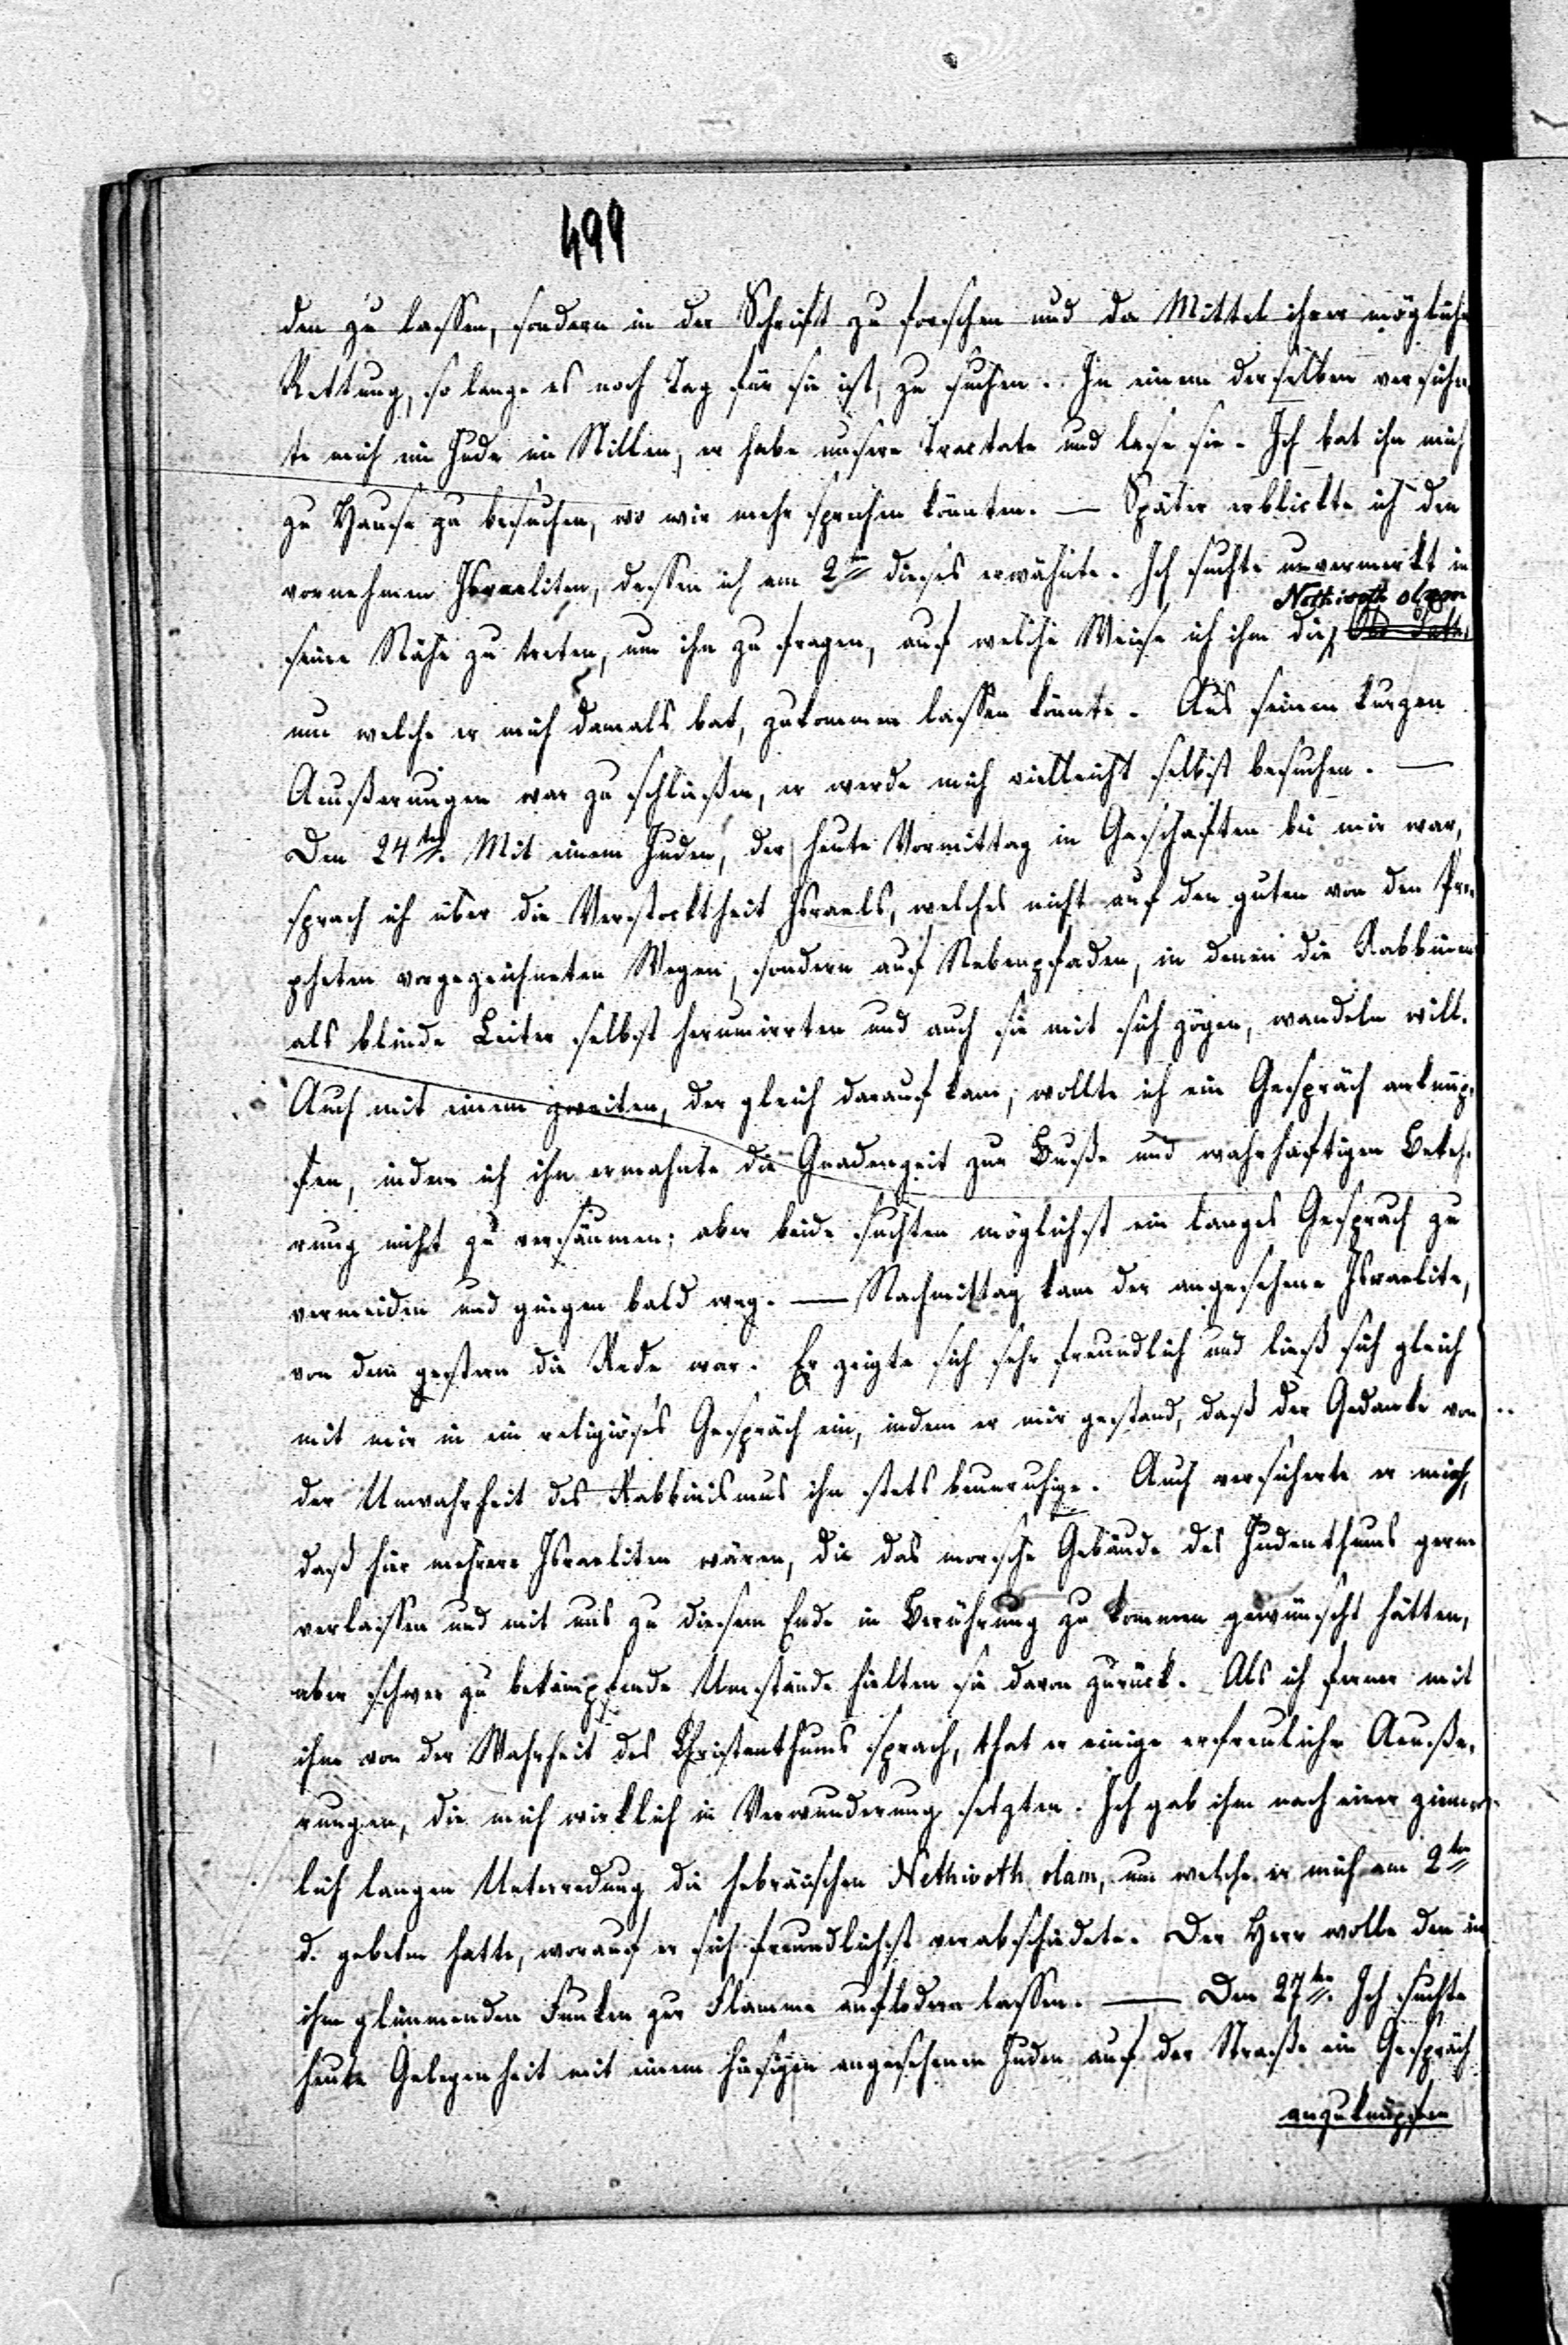 499
den zu lassen, sondern in der Schrift zu forschen und da Mittel ihrer mögliche
Rettung, so lange es noch Tag für sie ist, zu suchen. In einem derselben versicher
te mich ein Jude im Stillen, er habe unsere Tractate und lese sie. Ich bat ihn mich
zu Hause zu besuchen, wo wir mehr sprechen könnten. — Später erblickte ich den
vornehmen Israeliten, dessen ich am 2ten dieses erwähnte. Ich suchte unvermerkt in
Nethivoth olam
seine Nähe zu treten, um ihn zu fragen, auf welche Weise ich ihm die
um welche er mich damals bat, zukommen lassen könnte. Aus seinen kurzen
Aeußerungen war zu schließen, er werde mich vielleicht selbst besuchen. —
Den 24ten. Mit einem Juden, der heute Vormittag in Geschäften bei mir war,
sprach ich über die Verstocktheit Israels, welches nicht auf den guten von den Pro-
pheten vorgezeichneten Wegen, sondern auf Nebenpfaden, in denen die Rabbinen
als blinde Leiter selbst herumirrten und auch sie mit sich zögen, wandeln will.
Auch mit einem zweiten, der gleich darauf kam, wollte ich ein Gespräch anknüp-
fen, indem ich ihn ermahnte die Gnadenzeit zur Buße und wahrhaftigen Bekeh-
rung nicht zu versäumen; aber beide suchten möglichst ein langes Gespräch zu
vermeiden und gingen bald weg. — Nachmittag kam der angesehene Israelite,
von dem gestern die Rede war. Er zeigte sich sehr freundlich und ließ sich gleich
mit mir in ein religiöses Gespräch ein, indem er mir gestand, daß der Gedanke von
der Unwahrheit des Rabbinismus ihn stets beunruhige. Auch versicherte er mich,
daß hier mehrere Israeliten wären, die das morsche Gebäude des Judenthums gerne
verlassen und mit uns zu diesem Ende in Berührung zu kommen gewünscht hätten,
aber schwer zu bekämpfende Umstände hielten sie davon zurück. Als ich ferner mit
ihm von der Wahrheit des Christenthums sprach, that er einige erfreuliche Aeuße-
rungen, die mich wirklich in Verwunderung setzten. Ich gab ihm nach einer ziem-
lich langen Unterredung die hebräischen Nethivoth olam, um welche er mich am 2ten
d. gebeten hatte, worauf er sich freundlichst verabschiedete. Der Herr wolle den in
ihm glimmenden Funken zur Flamme auflodern lassen. — Den 27ten. Ich suchte
heute Gelegenheit mit einem hiesigen angesehenen Juden auf der Straße ein Gespräch
anzuknüpfen